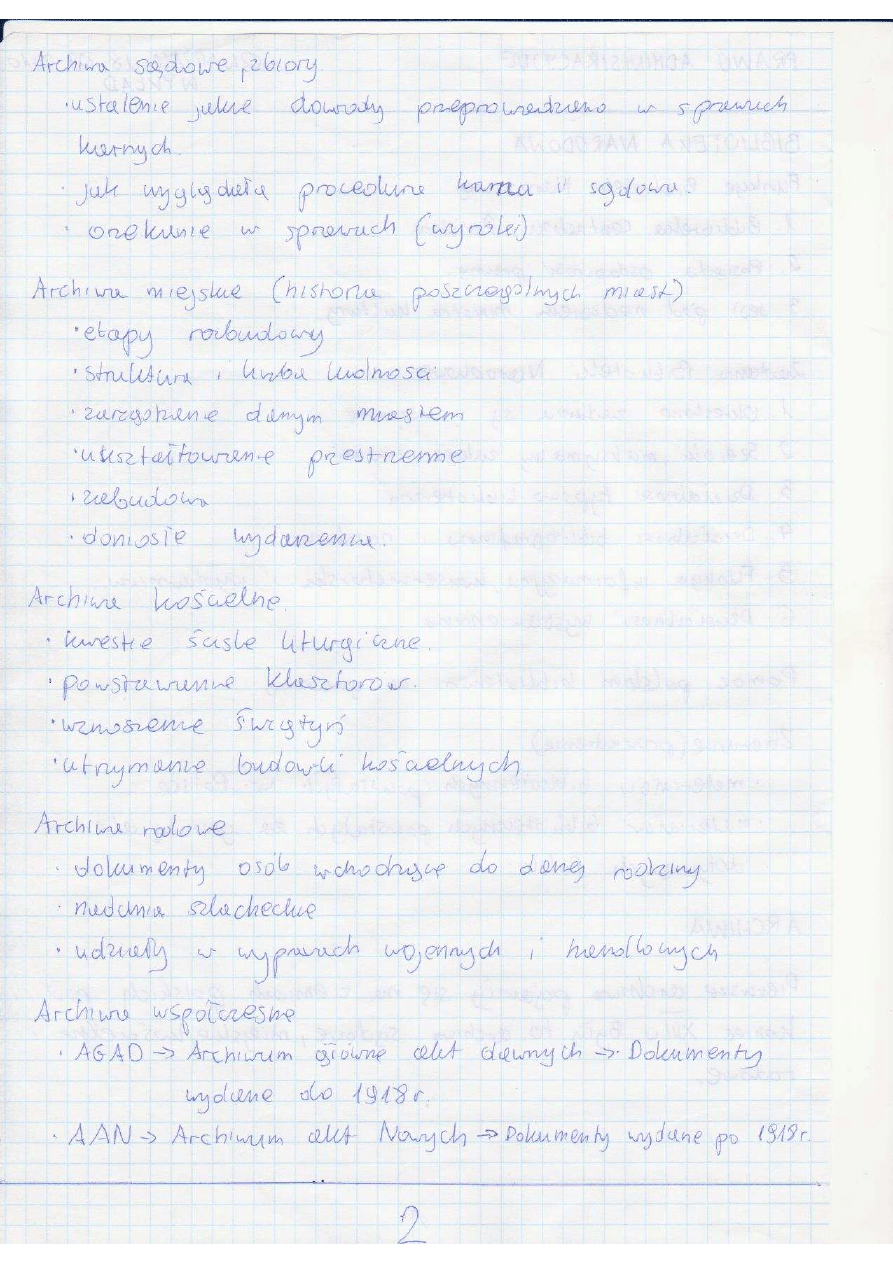 Archiwa sądowe, zbiory
· ustalenie jakie dowody przeprowadzono w sprawach
karnych.
· jak wyglądała procedura karna i sądowa.
· orzekanie w sprawach (wyroki)
Archiwa miejskie (historia poszczególnych miast)
· etapy rozbudowy
· struktura i liczba ludności
· zarządzanie danym miastem
· ukształtowanie przestrzenne
· zabudowa
· doniosłe wydarzenia.
Archiwa kościelne.
· kwestie ściśle liturgiczne.
· powstawanie klasztorów.
· wznoszenie świątyń
· utrzymanie budowli kościelnych
Archiwa rodowe
· dokumenty osób wchodzące do danej rodziny
· nadania szlacheckie
· udziały w wyprawach wojennych i handlowych
Archiwa współczesne
· AGAD → Archiwum główne akt dawnych → Dokumenty
wydane do 1918 r.
· AAN → Archiwum akt Nowych → Dokumenty wydane po 1918 r.
2